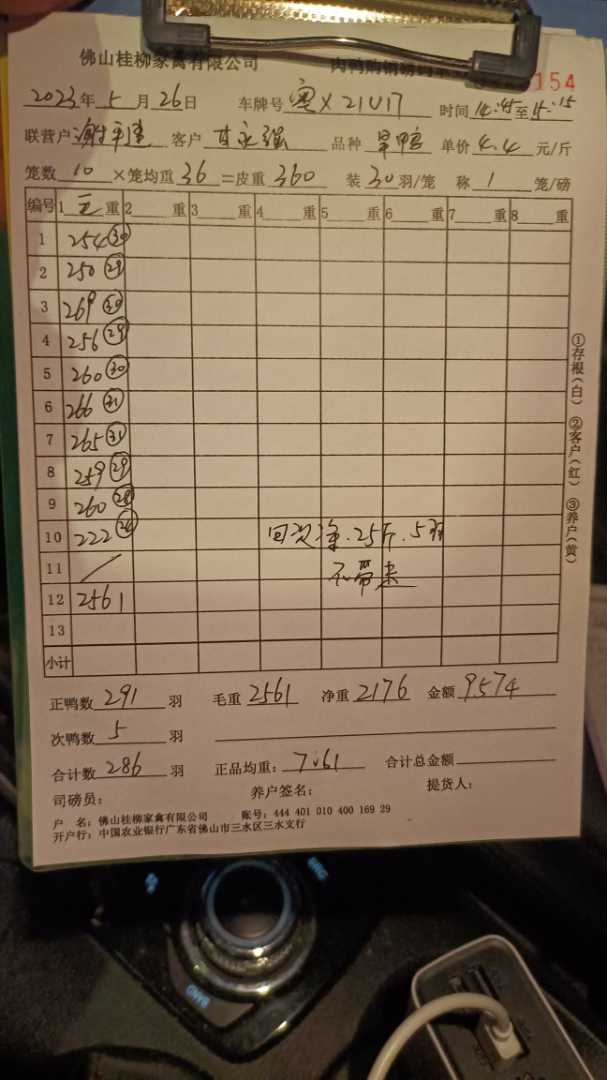 佛山桂柳家禽有限公司 肉鸭购销磅码单 154
2023年5月26日 车牌号 粤X21U17 时间14:45至15:15
联营户 客户 品种 单价4.4元/斤
笼数10×笼均重36=皮重360 装30羽/笼 称1笼/磅
编号 1毛重 2重 3重 4重 5重 6重 7重 8重
1 254 30
2 250 29
3 269 30
4 256 29
5 260 30
6 266 31
7 265 31
8 259 29
9 260 28
10 222 24 回次净.25斤.5羽
11 / 不带来
12 2561
13
小计
正鸭数291羽 毛重2561 净重2176 金额9574
次鸭数5羽
合计数286羽 正品均重:7.61 合计总金额
司磅员: 养户签名: 提货人:
户 名:佛山桂柳家禽有限公司 账号:444 401 010 400 169 29
开户行:中国农业银行广东省佛山市三水区三水支行
①存根(白) ②客户(红) ③养户(黄)
BAND